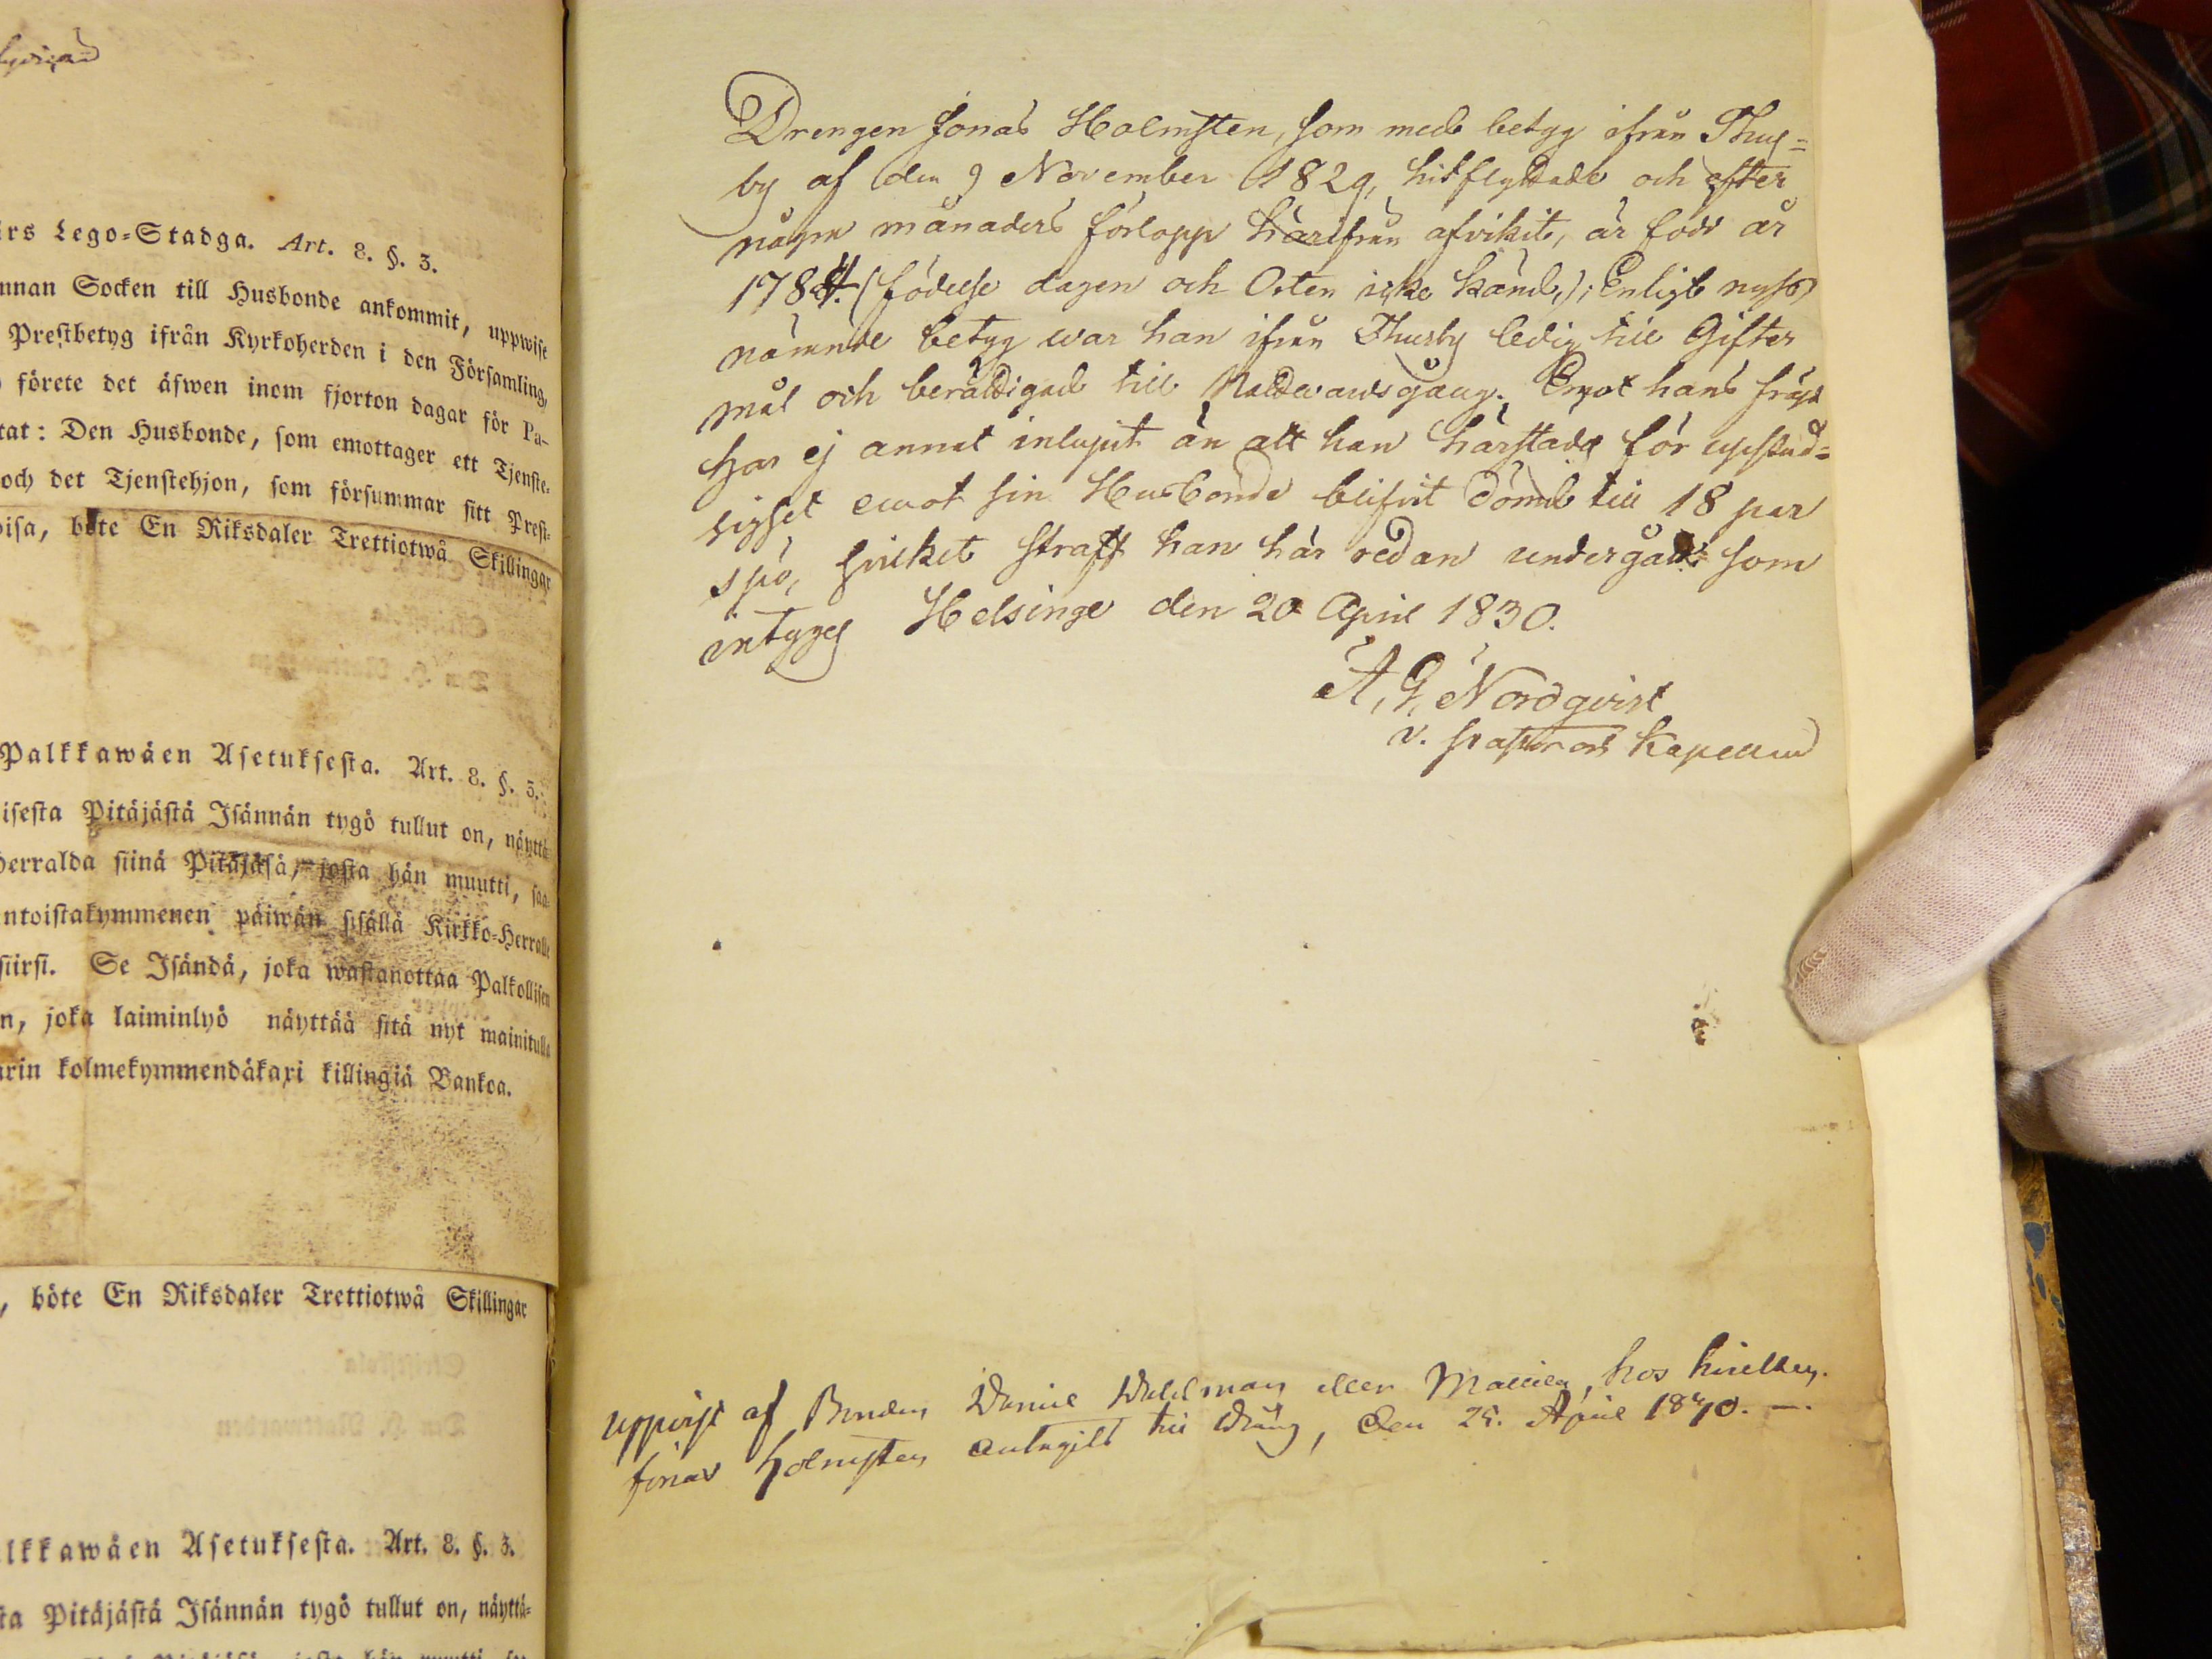 irs Lego-Stadga. Art. 8. §. 3.
nnan Socken till Husbonde ankommit, uppwise
Prestbetyg ifrån Kyrkoherden i den Församling,
förete det äfwen inom fjorton dagar för Pa-
tat: Den Husbonde, som emottager ett Tjenste-
och det Tjenstehjon, som försummar sitt Prest-
isa, böte En Riksdaler Trettiotwå Skillingar
Palkkawäen Asetuksesta. Art. 8. §. 3.
isesta Pitäjästä Isännän tygö tullut on, näyttä
herralda siinä Pitäjäsä, josta hän muutti, saa
ntoistakymmenen päiwän sisällä Kirkko-Herralle
siirsi. Se Isändä, joka wastanottaa Palkollisen
n, joka laiminlyö näyttää sitä nyt mainitulla
arin kolmekymmendäkaxi killingiä Bankoa.
, böte En Riksdaler Trettiotwå Skillingar
lkkawäen Asetuksesta. Art. 8. §. 3.
ta Pitäjästä Isännän tygö tullut on, näyttä-
Drengen Jonas Holmsten, som med betyg ifrån Thus=
by af den 9 November 1829, hitflyttade och efter
några månaders förlopp härifrån afvikit, är född år
1784. (födelse dagen och Orten icke känd,); Enligt nyss
nämnde betyg war han ifrån Thusby ledig till Gifter
mål och berättigad till Nattvardsgång. Emot hans fräjd
har ej annat inlupit än att han härstädes för upstud=
sighet emot sin Husbonde blifvit dömd till 18 par
spö, hvilket straff han här redan undergått som
intygas Helsinge den 20 April 1830.
A. G. Nordqvist
v. pastor och Kapellan
Uppvist af Bonden Daniel Wahlman eller Mattila, hos hvilken
Jonas Holmsten antagits till Dräng, den 25. April 1830. —.